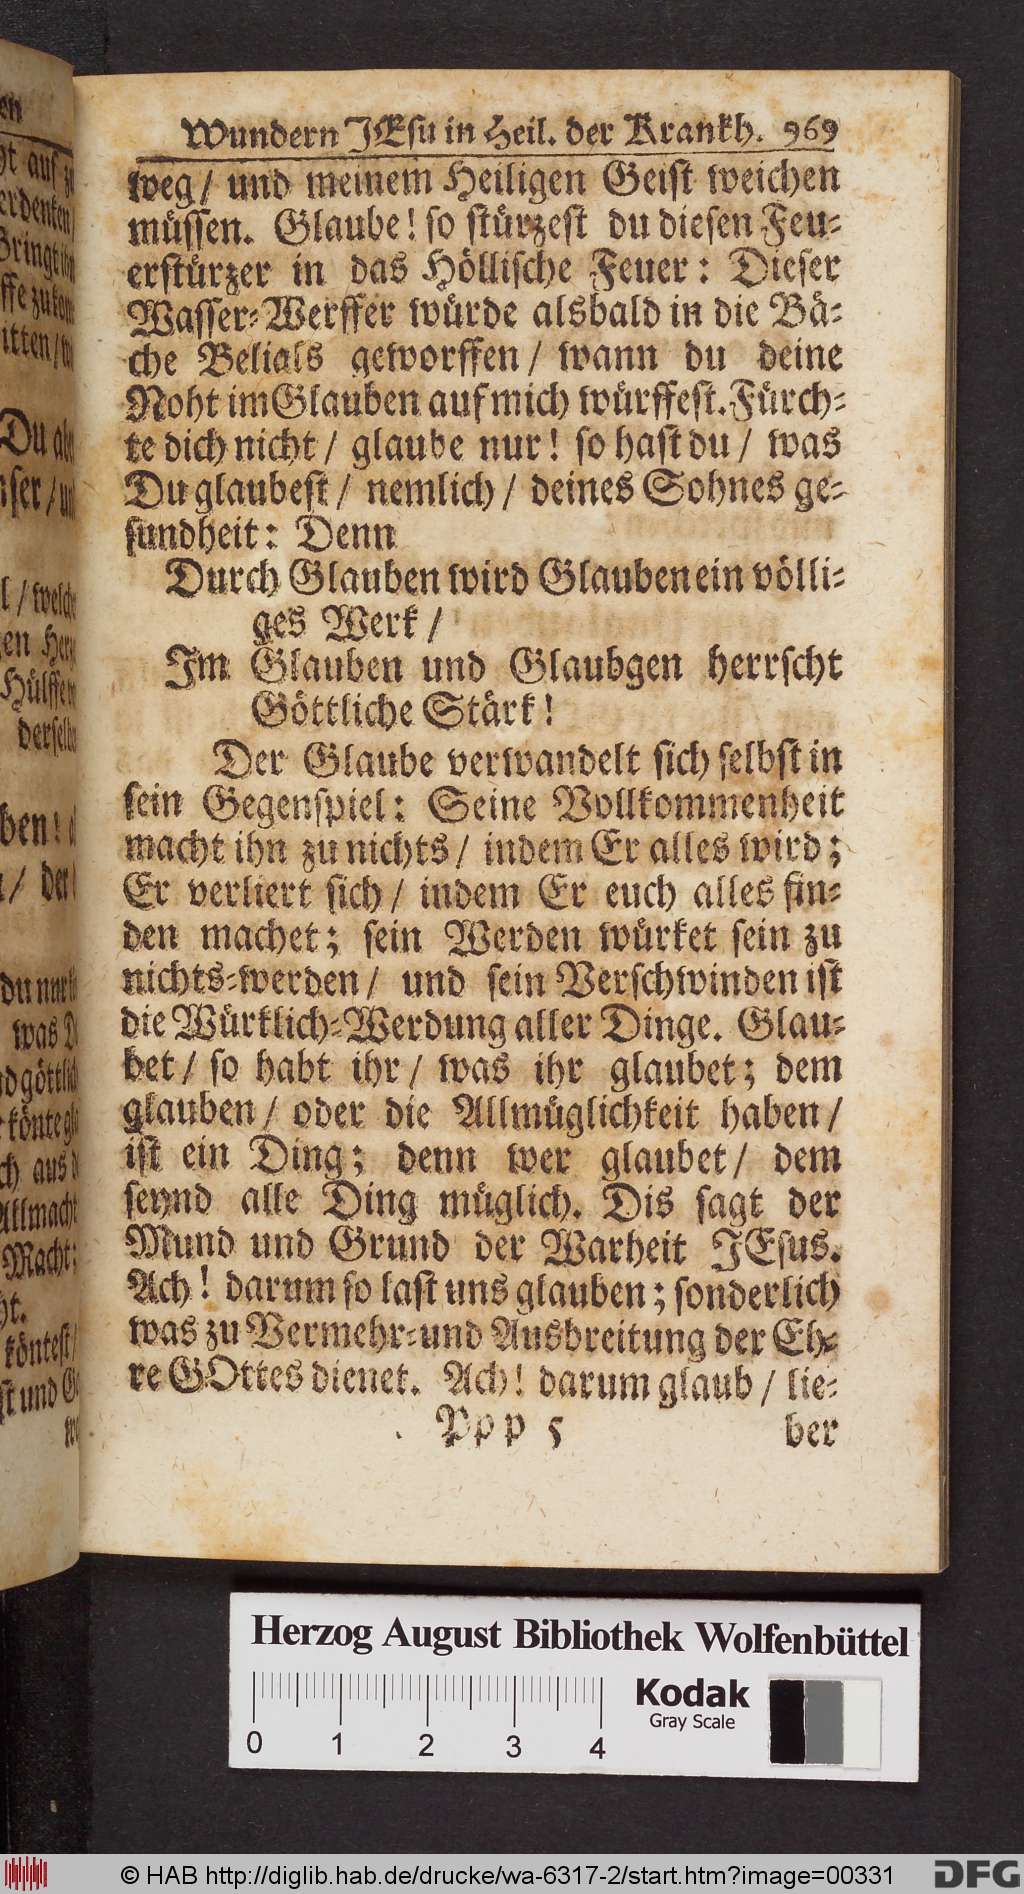 Wundern JEsu in Heil. der Krankh. 969
weg / und meinem Heiligen Geist weichen
müssen. Glaube! so stürzest du diesen Feu-
erstürzer in das Höllische Feuer: Dieser
Wasser-Werffer würde alsbald in die Bä-
che Belials geworffen / wann du deine
Noht im Glauben auf mich würffest. Fürch-
te dich nicht / glaube nur! so hast du / was
Du glaubest / nemlich / deines Sohnes ge-
sundheit: Denn
Durch Glauben wird Glauben ein völli-
ges Werk /
Im Glauben und Glaubgen herrscht
Göttliche Stärk!
Der Glaube verwandelt sich selbst in
sein Gegenspiel: Seine Vollkommenheit
macht ihn zu nichts / indem Er alles wird;
Er verliert sich / indem Er euch alles fin-
den machet; sein Werden würket sein zu
nichts-werden / und sein Verschwinden ist
die Würklich-Werdung aller Dinge. Glau-
bet / so habt ihr / was ihr glaubet; dem
glauben / oder die Allmüglichkeit haben /
ist ein Ding; denn wer glaubet / dem
seynd alle Ding müglich. Dis sagt der
Mund und Grund der Warheit JEsus.
Ach! darum so last uns glauben; sonderlich
was zu Vermehr- und Ausbreitung der Eh-
re GOttes dienet. Ach! darum glaub / lie-
Ppp 5 ber
Herzog August Bibliothek Wolfenbüttel
0 1 2 3 4
Kodak
Gray Scale
© HAB http://diglib.hab.de/drucke/wa-6317-2/start.htm?image=00331
DFG